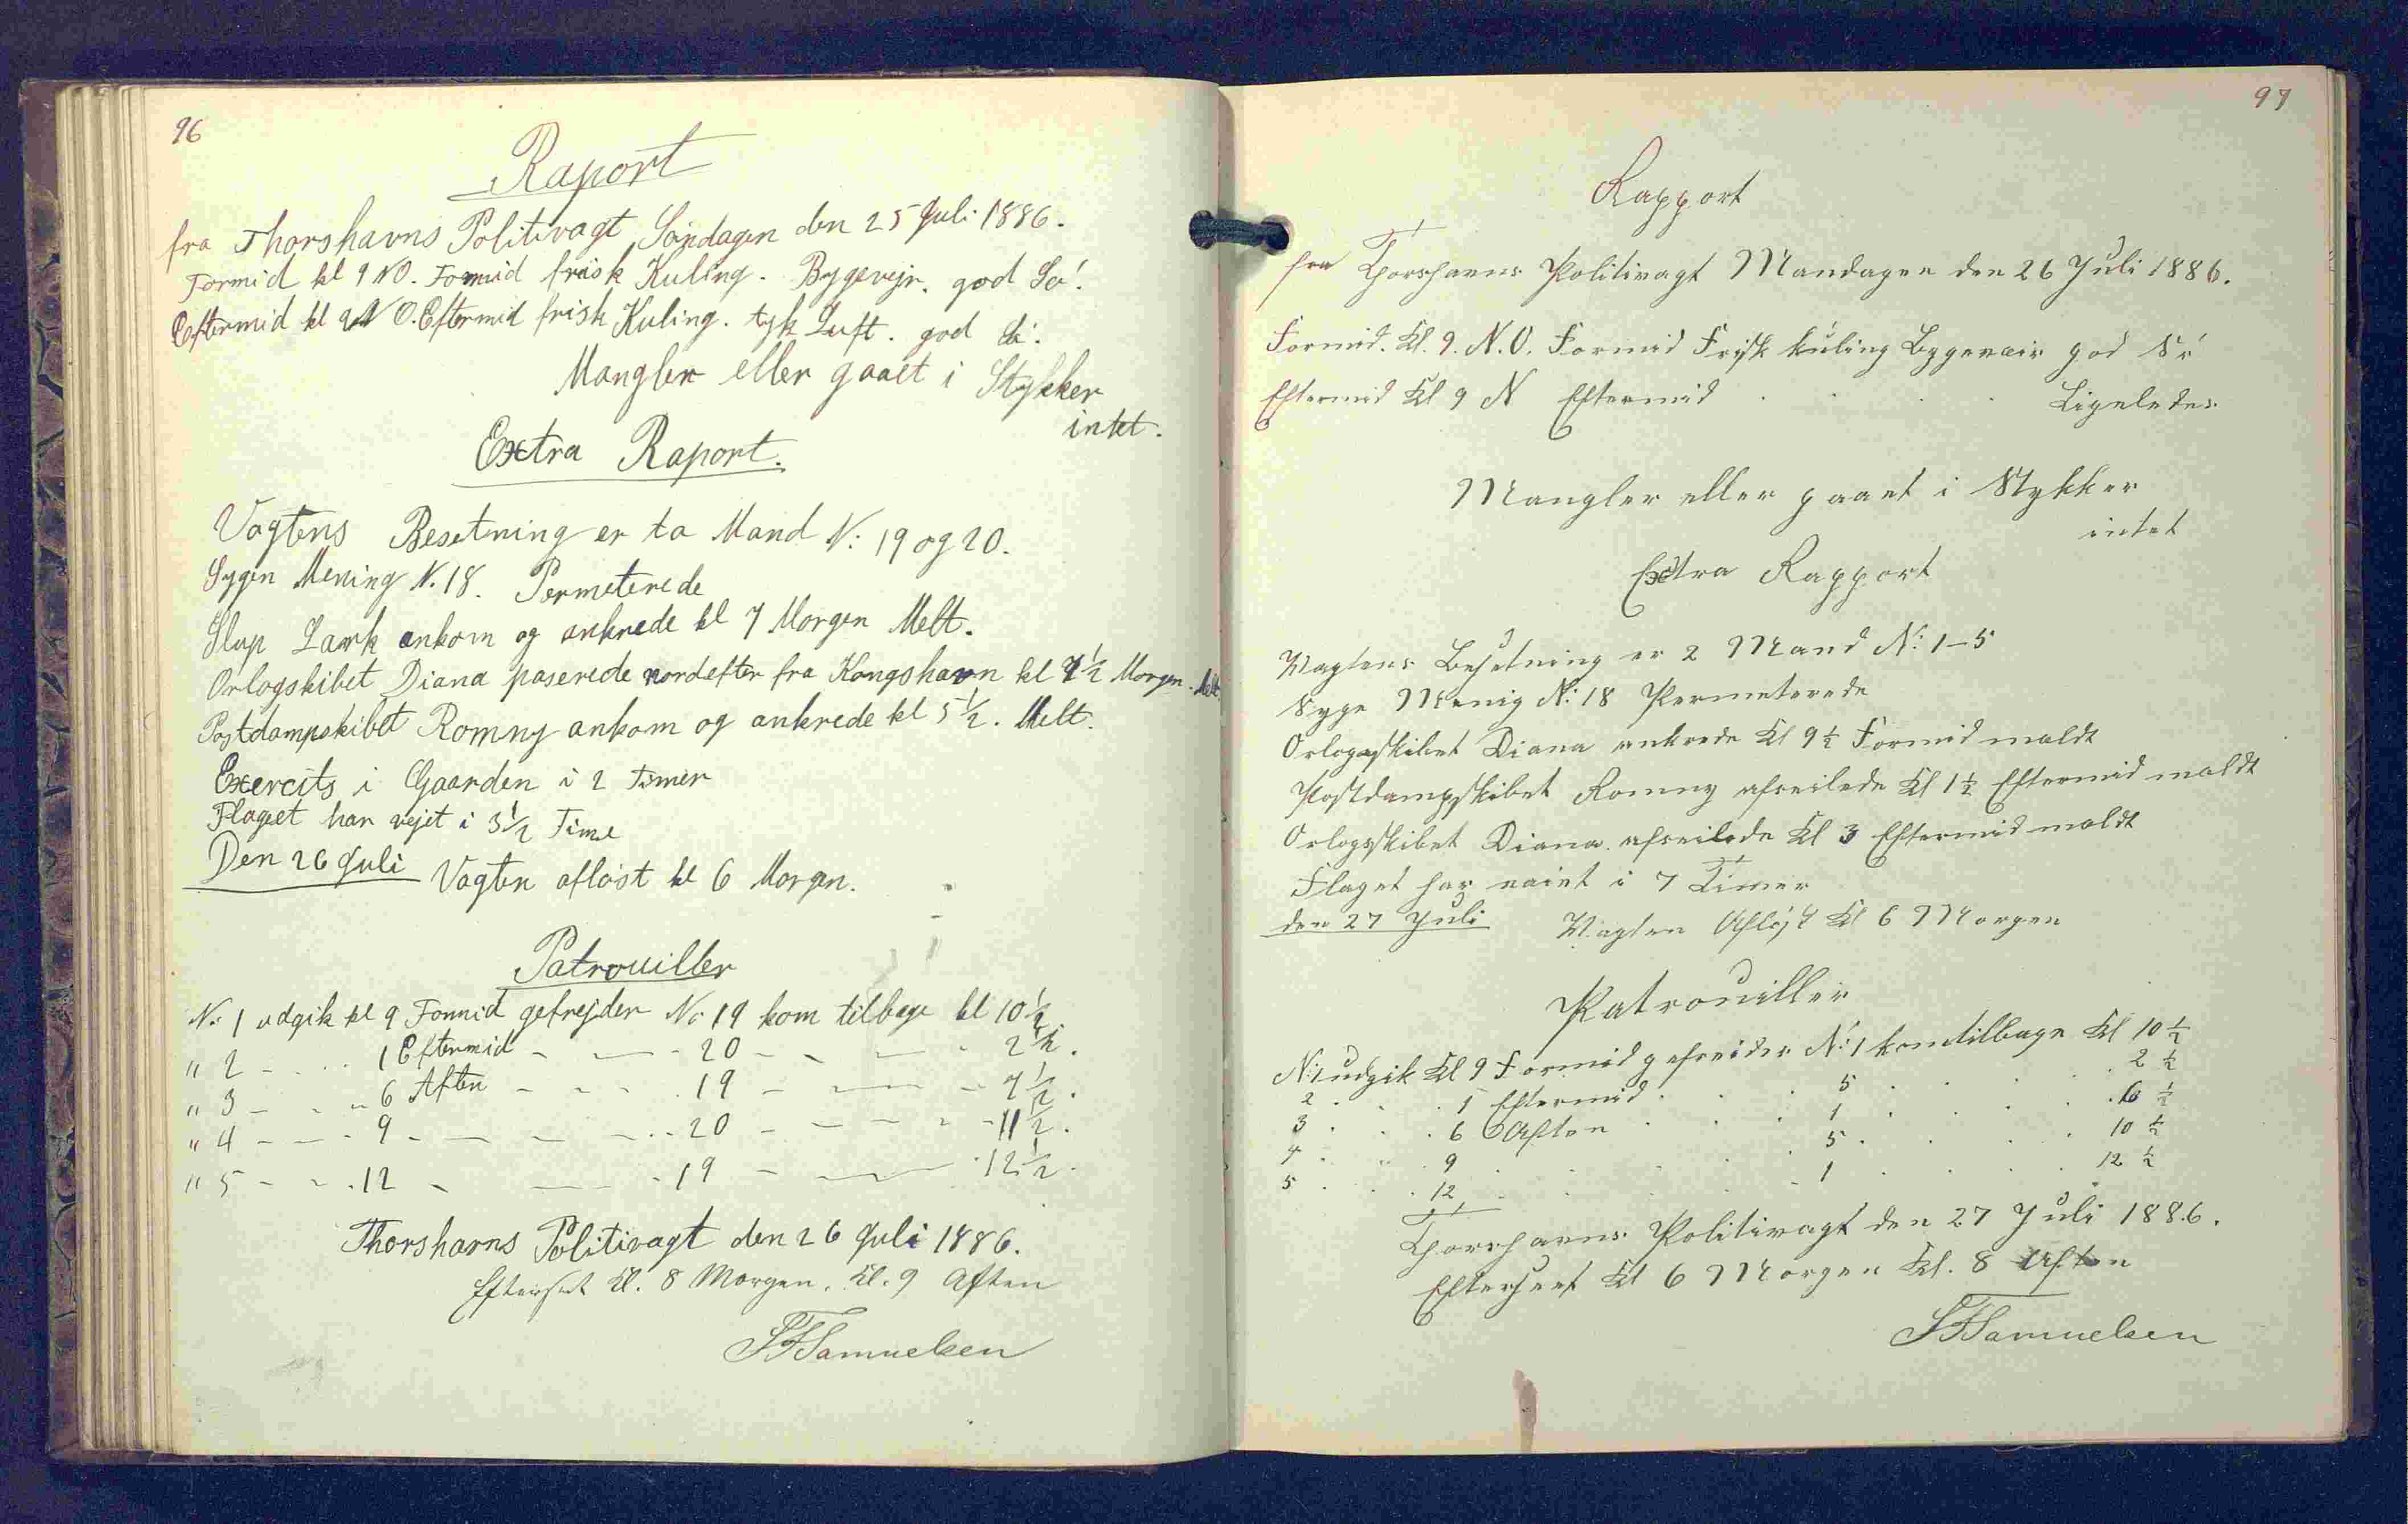 96
Raport
fra Thorshavns Politivagt Søndagen den 25 Juli 1886.
Formid kl 9 NO. Formid frisk Kuling. Bygevejr. god Sø.
Eftermid kl 9 N O. Eftermid frisk Kuling. tyk Luft. god Sø.
Mangler eller gaaet i Stykker
intet.
Extra Raport.
Vagtens Besetning er to Mand N: 19 og 20.
Sygen Mening N. 18. Permeterede
Slup Lark ankom og ankrede kl 7 Morgen Melt.
Orlogskibet Diana paserede nordefter fra Kongshavn kl 7½ Morgen. Melt
Postdampskibet Romny ankom og ankrede kl 5½. Melt.
Exercits i Gaarden i 2 Timer
Flaget har vejet i 3½ Time
Den 26 Juli Vagten afløst kl 6 Morgen.
Patrouiller
No 1 udgik kl 9 Formid gefrejder No 19 kom tilbage kl 10½
" 2 - - - 1 Eftermid - - - 20 - - - 2½.
" 3 - - - 6 Aften - - - 19 - - - 7½.
" 4 - - - 9 - - - 20 - - - 11½.
" 5 - - - 12 - - - 19 - - - 12½.
Thorshavns Politivagt den 26 Juli 1886.
Efterset Kl. 8 Morgen. Kl. 9 Aften
SFSamuelsen
97
Rapport
fra Thorshavns Politivagt Mandagen den 26 Juli 1886.
Formid. Kl. 9. N.O. Formid Frisk kuling Bygeveir god Sø
Eftermid Kl 9 N Eftermid . . . Ligeledes
Mangler eller gaaet i Stykker
intet
Extra Rapport
Vagtens Besetning er 2 Mand N: 1-5
Syge Menig N: 18 Permeterede
Orlogsskibet Diana ankrede Kl 9½ Formid meldt
Postdampskibet Romny afseilede Kl 1½ Eftermid meldt
Orlogsskibet Diana afseilede Kl 3 Eftermid meldt
Flaget har vaiet i 7 Timer
den 27 Juli Vagten Afløst Kl 6 Morgen
Patrouiller
N: 1 udgik Kl 9 Formid gefreider N: 1 kom tilbage Kl 10½
2 . . . 1 Eftermid . . . 5 . . . 2½
3 . . . 6 Aften . . . 1 . . . 6½
4 . . . 9 . . . 5 . . . 10½
5 . . . 12 . . . 1 . . . 12½
Thorshavns Politivagt den 27 Juli 1886.
Efterseet Kl 6 Morgen Kl. 8 Aften
SFSamuelsen